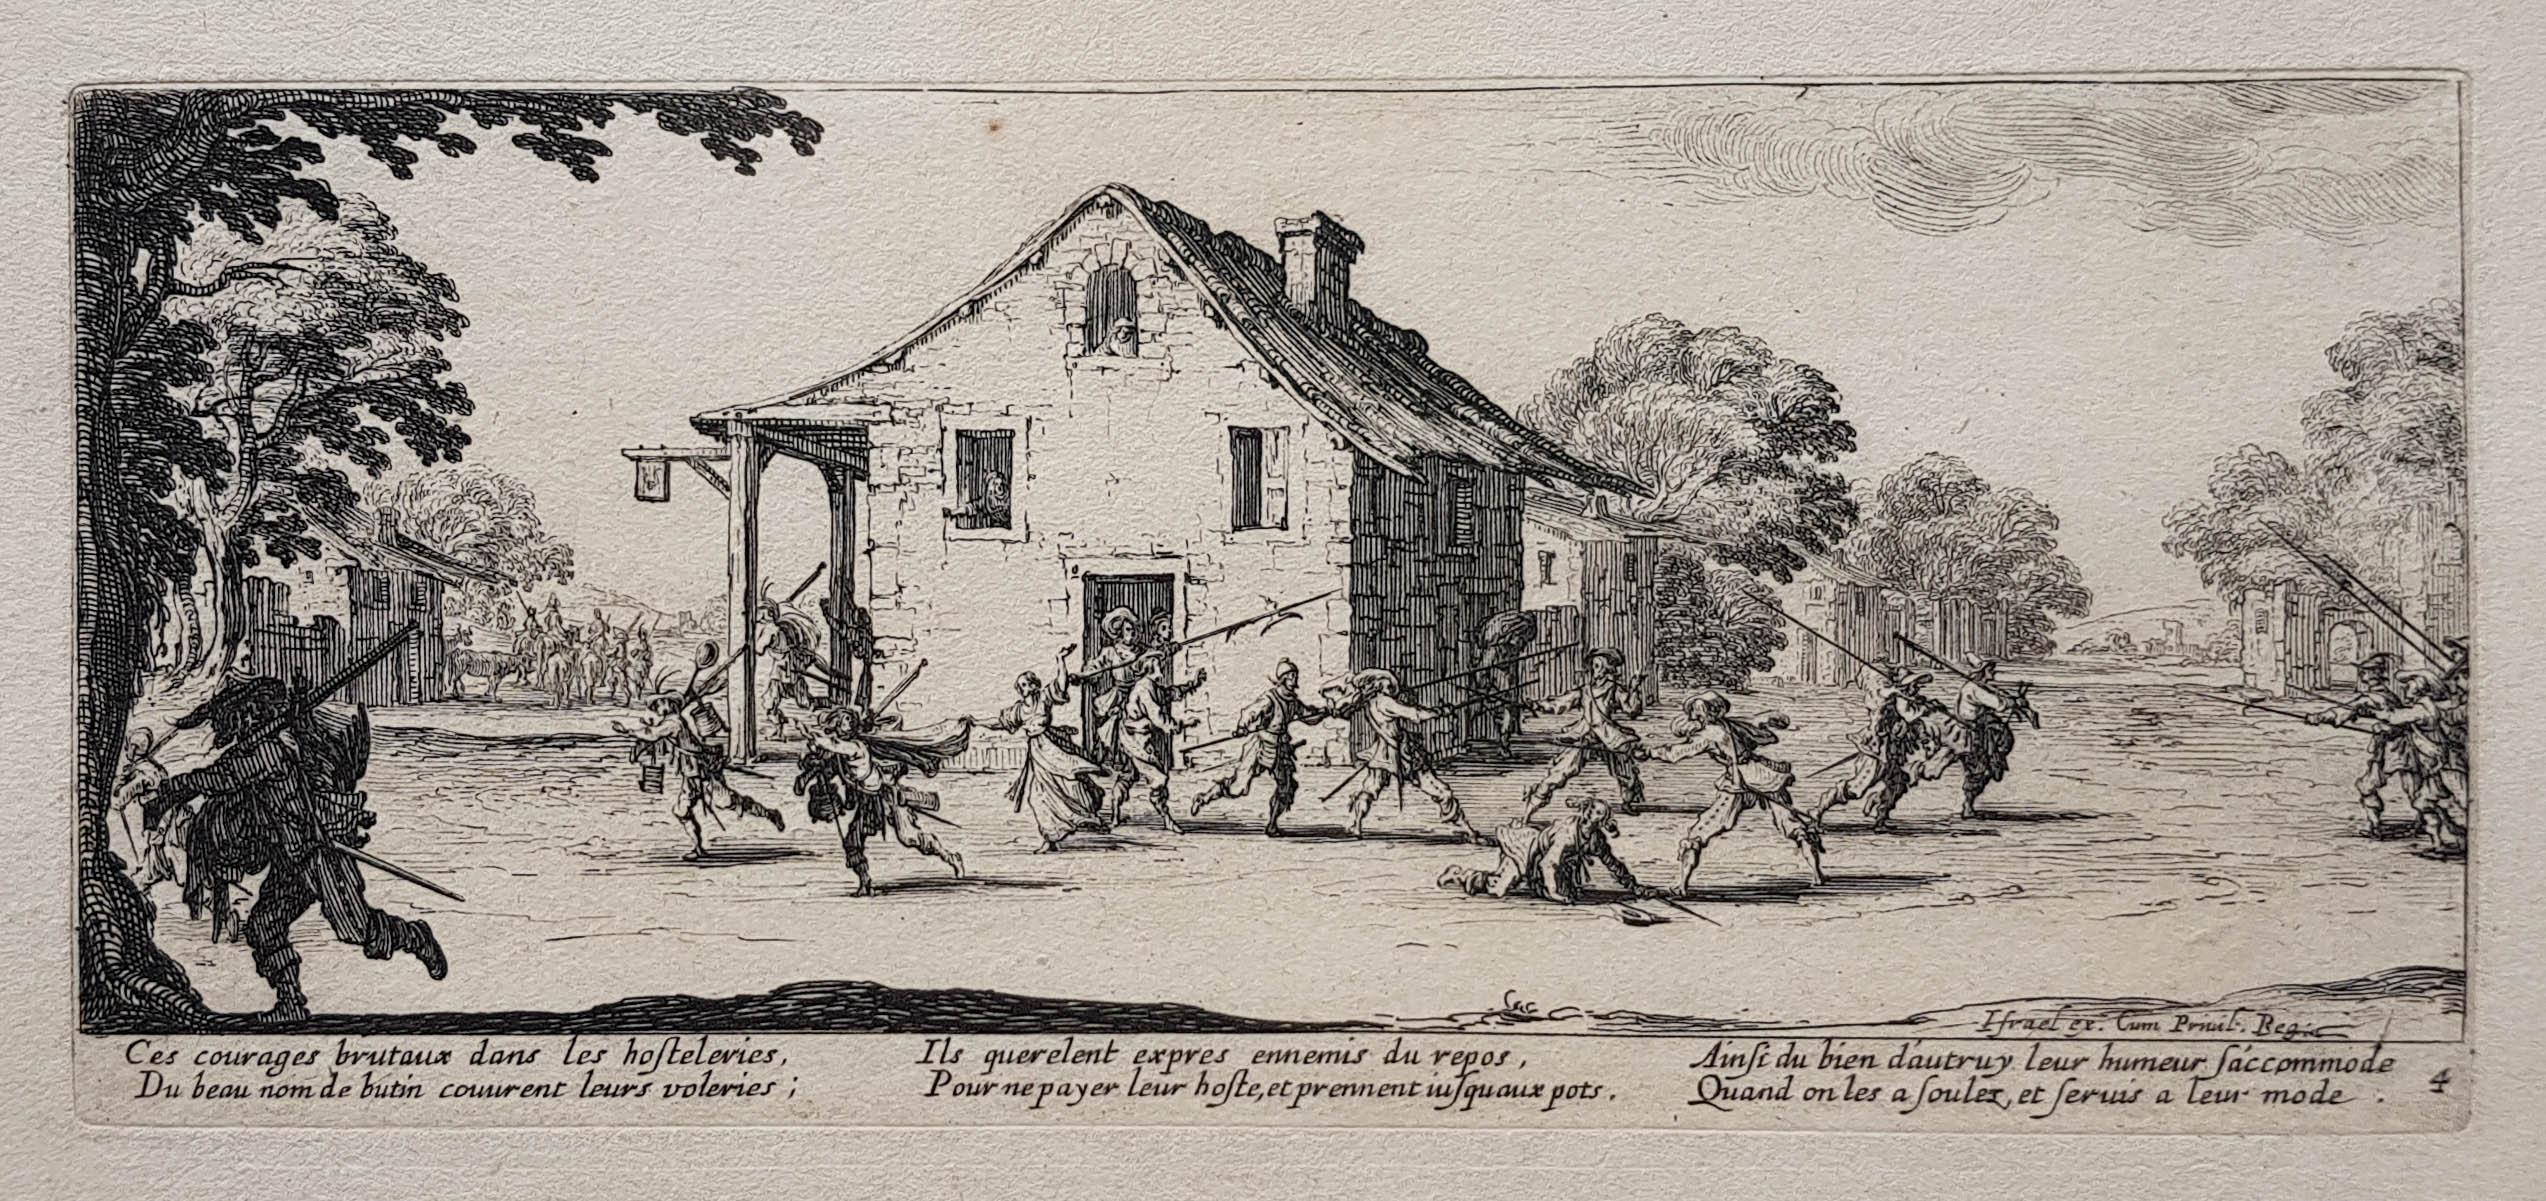 Iſrael ex. Cum Priuil. Reg.
Ces courages brutaux dans les hoſteleries,
Du beau nom de butin couurent leurs voleries ;
Ils querelent expres ennemis du repos,
Pour ne payer leur hoſte, et prennent iuſqu aux pots.
Ainſi du bien d'autruy leur humeur ſ'accommode
Quand on les a ſoulez, et ſeruis a leur mode .
4